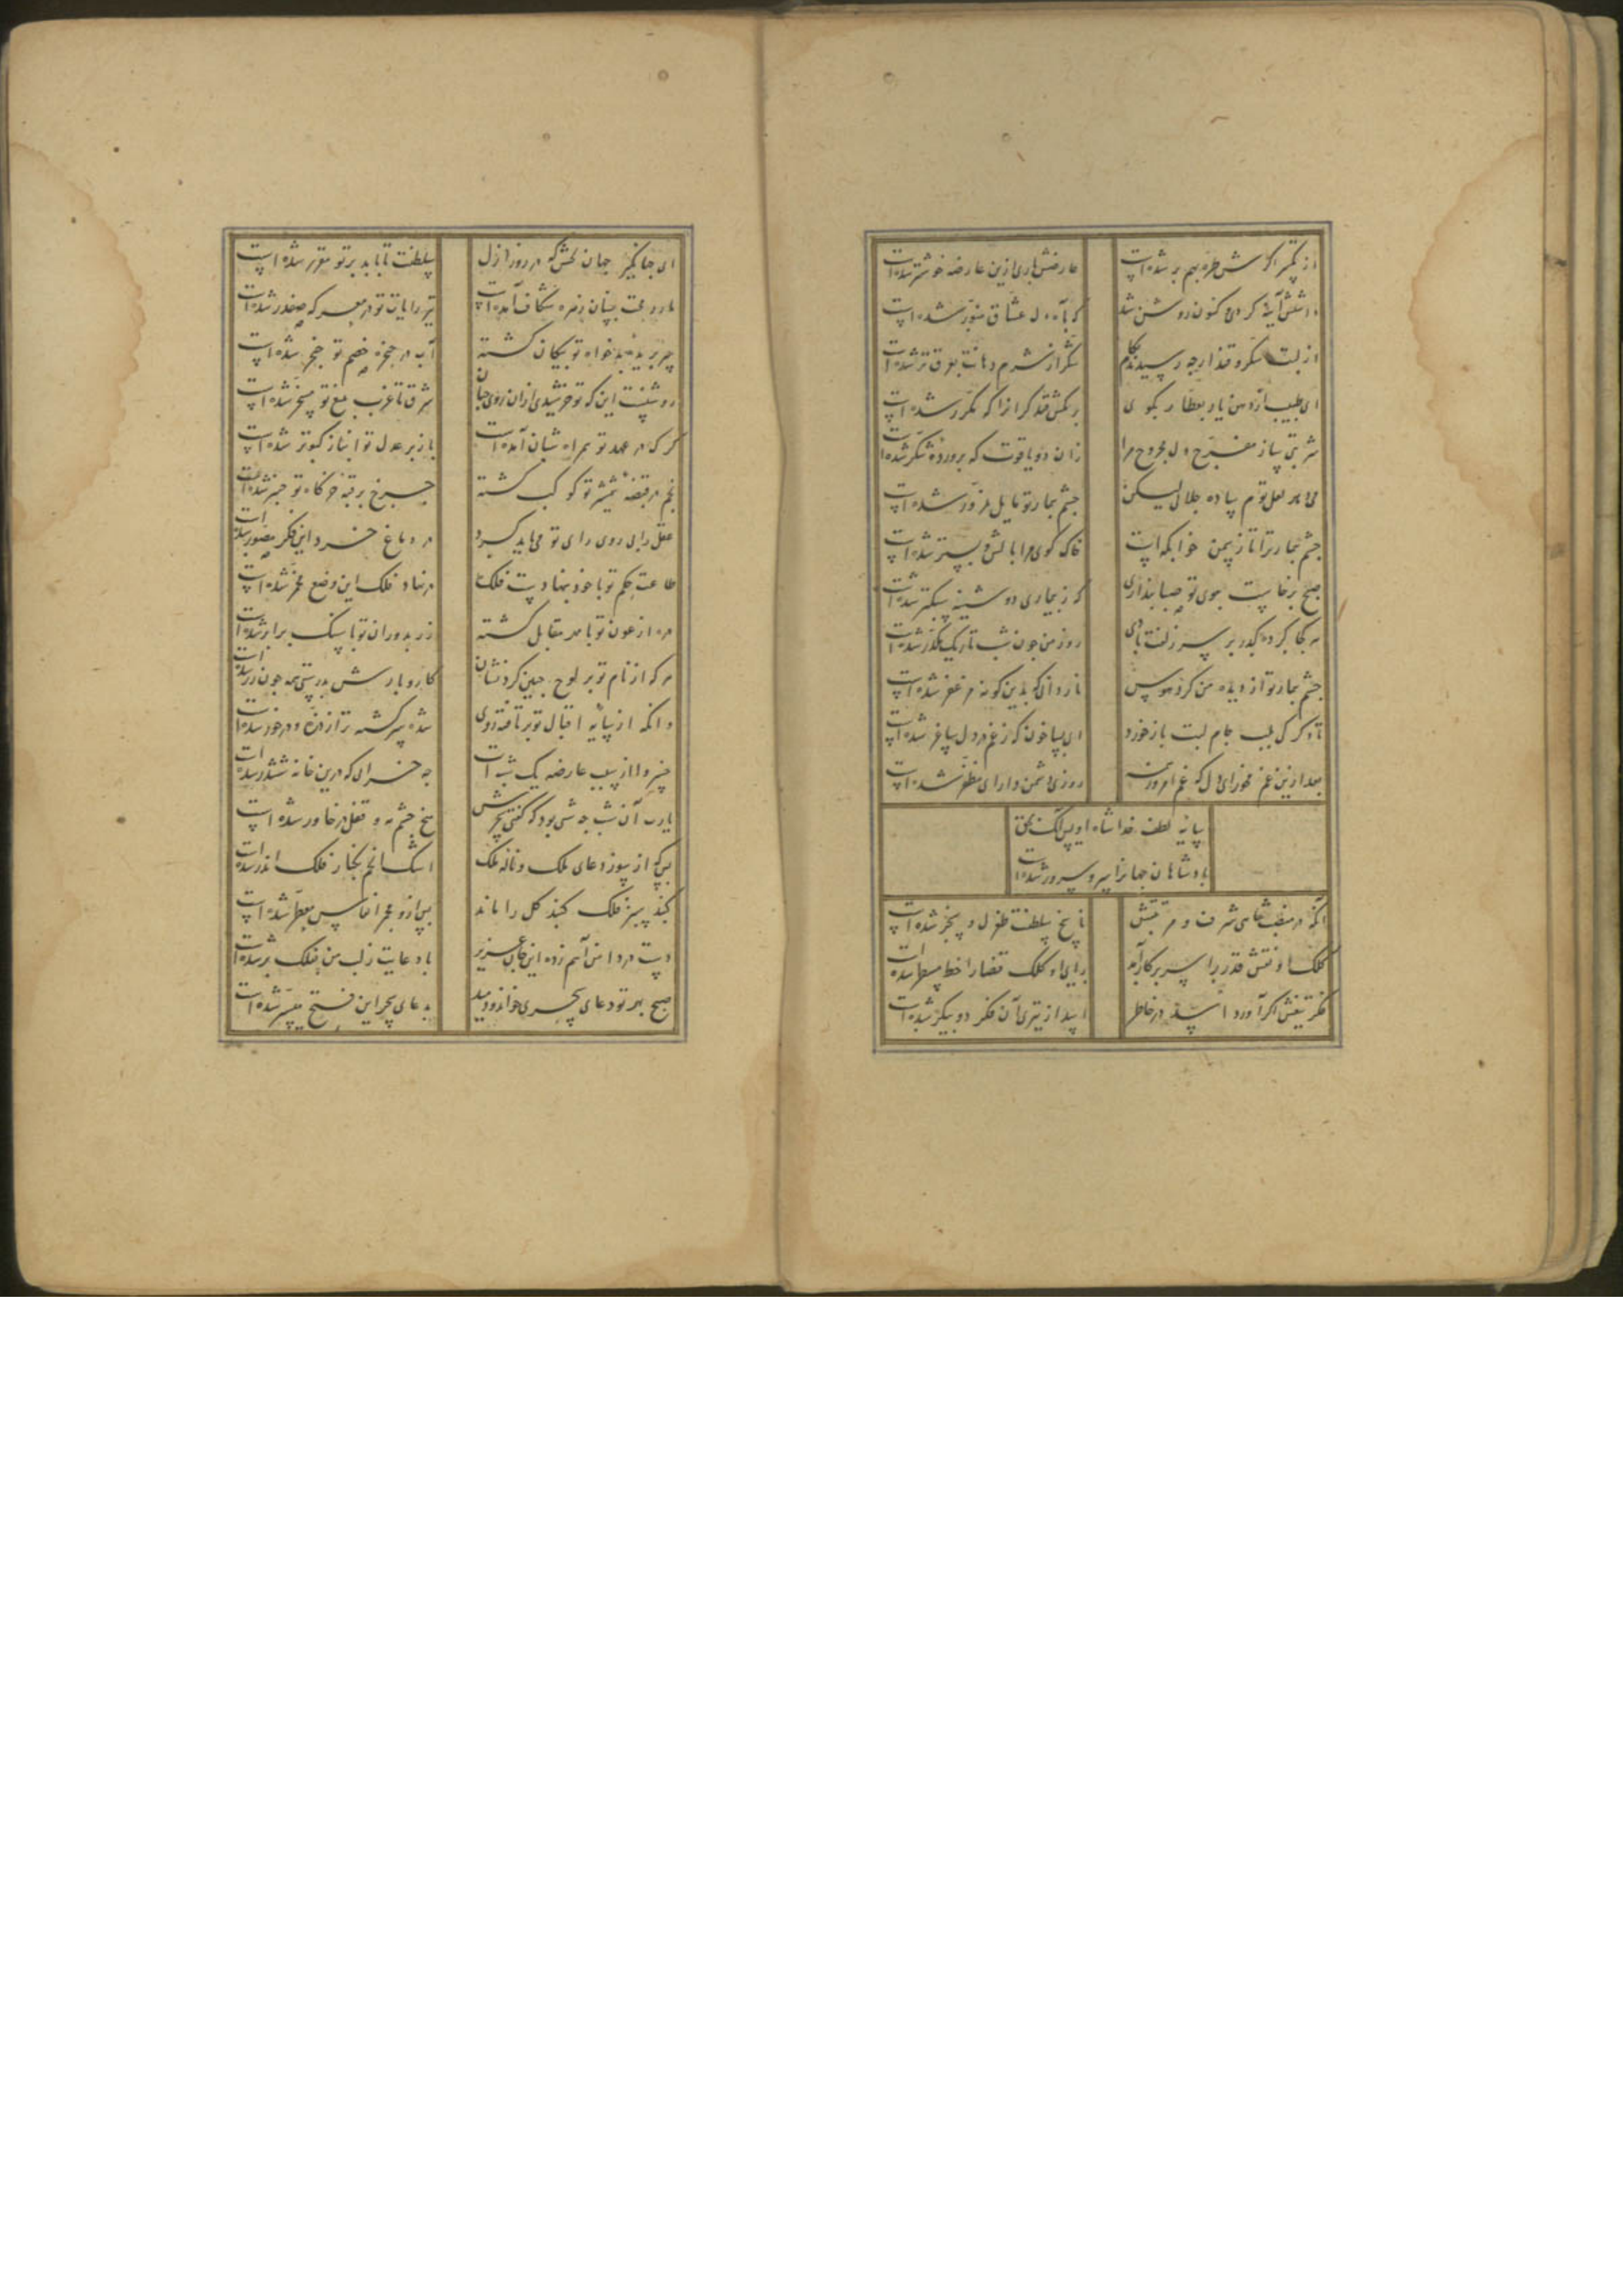 از تکسر اگرش طره بهم بر شده است
عارضش باری ازین عارضه خوشتر شده است
گر به آه دل عشاق منور شده است
از لبت شکر و قند ارچه رسیدند بکام
شکر از شرم دهانت بعرق تر شده است
ای طبیب از دهن یار بعطار بگوی
بر مکش قند گران را که مکرر شده است
شربتی ساز مفرح دل مجروح مرا
زان دو یاقوت که پرورده شکر شده است
چشم بیمار تو مایل بمزور شده است
چشم بیمار ترا تا ز چمن خوابگه است
خاک کوی مرا بالش و بستر شده است
صبح برخاست ببوی تو صبا پنداری
کز بیماری دوشینه سبکتر شده است
نه بجا کرده گذر بر سر زلفت بادی
روز من چون شب تاریک مکدر شده است
چشم بیمار تو از دیده من کرد هوس
نار دانی که بدین گونه مزعفر شده است
ای بسا خون که ز غم در دل ساغر شده است
بعد ازین غم مخور ای دل که غم امروز
روزی دشمن دارای مظفر شده است
سایه لطف خدا شاه اویس آنکه بحق
پادشاهان جهان را سر و سرور شده است
آنکه در منصب شاهی شرف و مرتبتش
ناسخ سلطنت طغرل و سنجر شده است
کلک او نقش قدر را بسر پرگار آمد
رای او کلک قضا را خط مسطر شده است
فکر تیغش اگر آورد اسد در خاطر
اسد از تیزی آن فکر دو پیکر شده است
ای جهانگیر جهان بخش که در روز ازل
سلطنت تا بابد بر تو مقرر شده است
مار رمحت بسنان زهره شکاف آمده است
تیر رایات تو در معرکه صفدر شده است
سر بر تیغ بدخواه تو پیکان گشته
آب در حنجره خصم تو خنجر شده است
روشنست این که تو خورشیدی از آن روی جهان
شرق تا غرب بتیغ تو مسخر شده است
گرگ در عهد تو همراه شبان آمده است
باز بر عدل تو انباز کبوتر شده است
نجم در قبضه شمشیر تو کوکب گشته
چرخ بر قبه خرگاه تو چنبر شده است
عقل را پی روی رای تو می باید کرد
در دماغ خرد این فکر مصور شده است
طاعت حکم تو با خود بنهادست فلک
در نهاد فلک این وضع مخمر شده است
مه از عون تو با مهر مقابل گشته
زر بدوران تو با سنگ برابر شده است
هر که از نام تو بر لوح جبین کرد نشان
کار و بارش بدرستی همه چون زر شده است
وانکه از سایه اقبال تو برتافته روی
شده سرگشته تر از ذره و در خور شده است
خسروا از سبب عارضه یک شبه ات
چه خبر داری که درین خانه ششدر شده است
یارب آن شب چه شبی بود که گفتی سحرش
میخ چشم مه و قفل در خاور شده است
بس که از سوز دعای ملک و ناله ملک
اشک انجم بکنار فلک اندر شده است
گنبد سبز فلک گنبد گل را ماند
بس از دم مجمر انفاس معطر شده است
دست در دامن آهم زده این جان عزیز
با دعایت ز لب من بفلک بر شده است
صبح بهر تو دعای سحری خواند و دمید
به دعای سحر این فتح میسر شده است